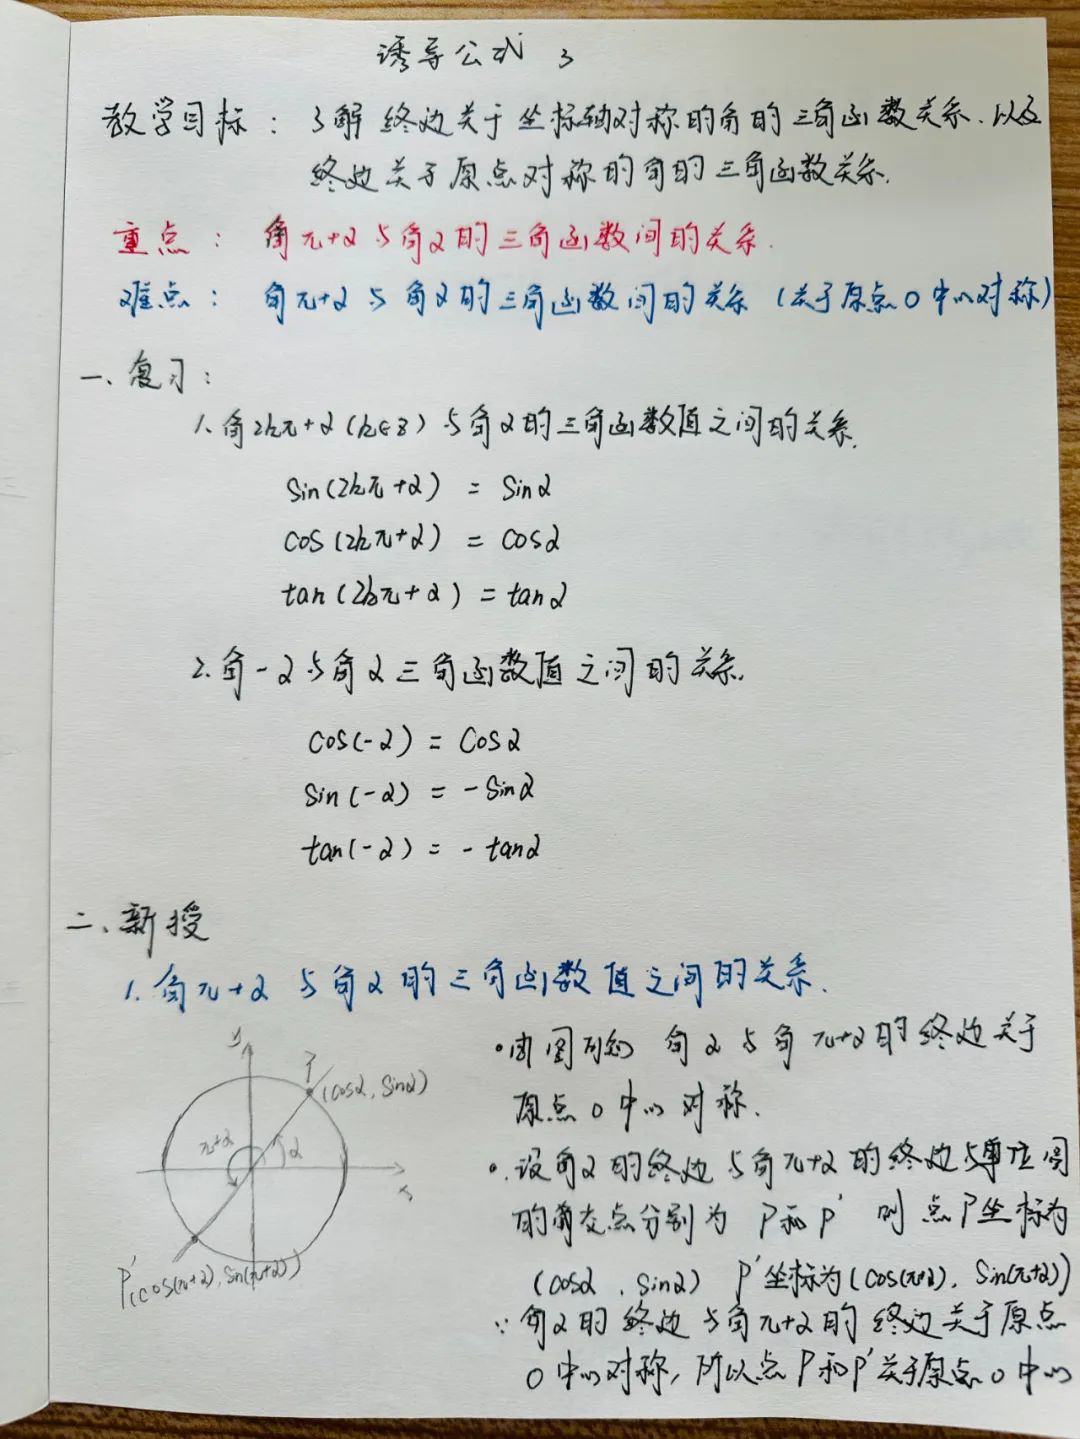 诱导公式 3
教学目标：了解终边关于坐标轴对称的角的三角函数关系.以及
终边关于原点对称的角的三角函数关系.
重点：角π+α与角α的三角函数间的关系.
难点：角π+α与角α的三角函数间的关系（关于原点O中心对称）
一、复习：
1.角2kπ+α（k∈Z）与角α的三角函数值之间的关系.
sin(2kπ+α) = sinα
cos(2kπ+α) = cosα
tan(2kπ+α) = tanα
2.角-α与角α三角函数值之间的关系.
cos(-α) = cosα
sin(-α) = -sinα
tan(-α) = -tanα
二、新授
1.角π+α与角α的三角函数值之间的关系.
y
P
(cosα, sinα)
π+α
α
x
P'(cos(π+α), sin(π+α))
•由图可知 角α与角π+α的终边关于
原点O中心对称.
•设角α的终边与角π+α的终边与单位圆
的角交点分别为 P和P' 则点P坐标为
(cosα, sinα) P'坐标为(cos(π+α), sin(π+α))
∵角α的终边与角π+α的终边关于原点
O中心对称，所以点P和P'关于原点O中心